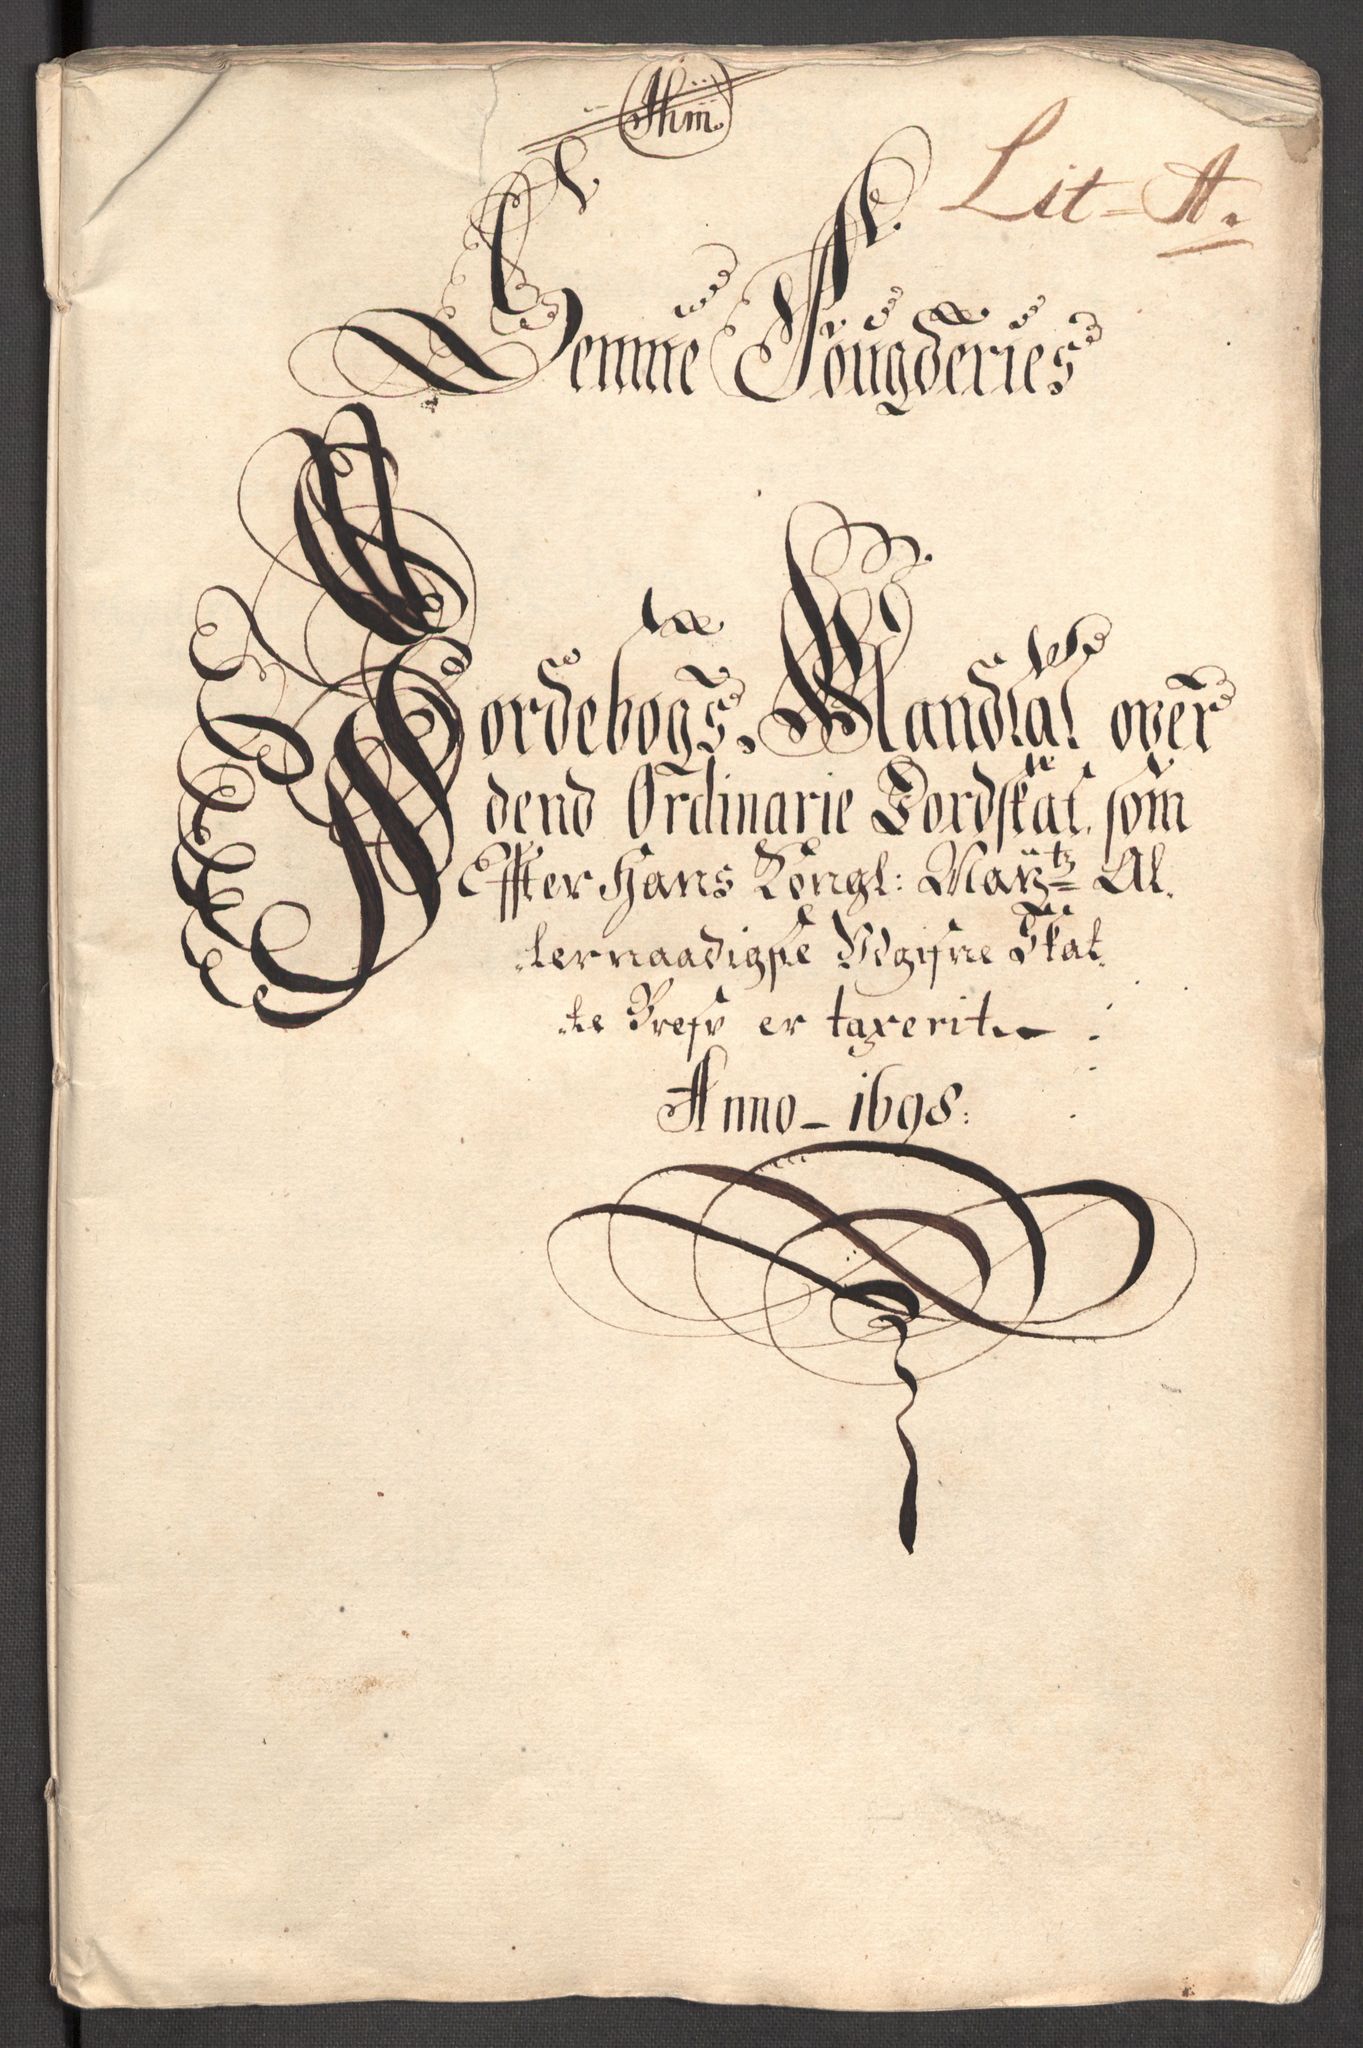 Lit - A.
Sennie Fougderies
Jordebogs Mandtal over
dend Ordinarie Jordskat som
Effter Hans Kongl: Maÿtz Al-
lernaadigste Udgifne Skat-
te Brefv er taxerit
Anno - 1698: